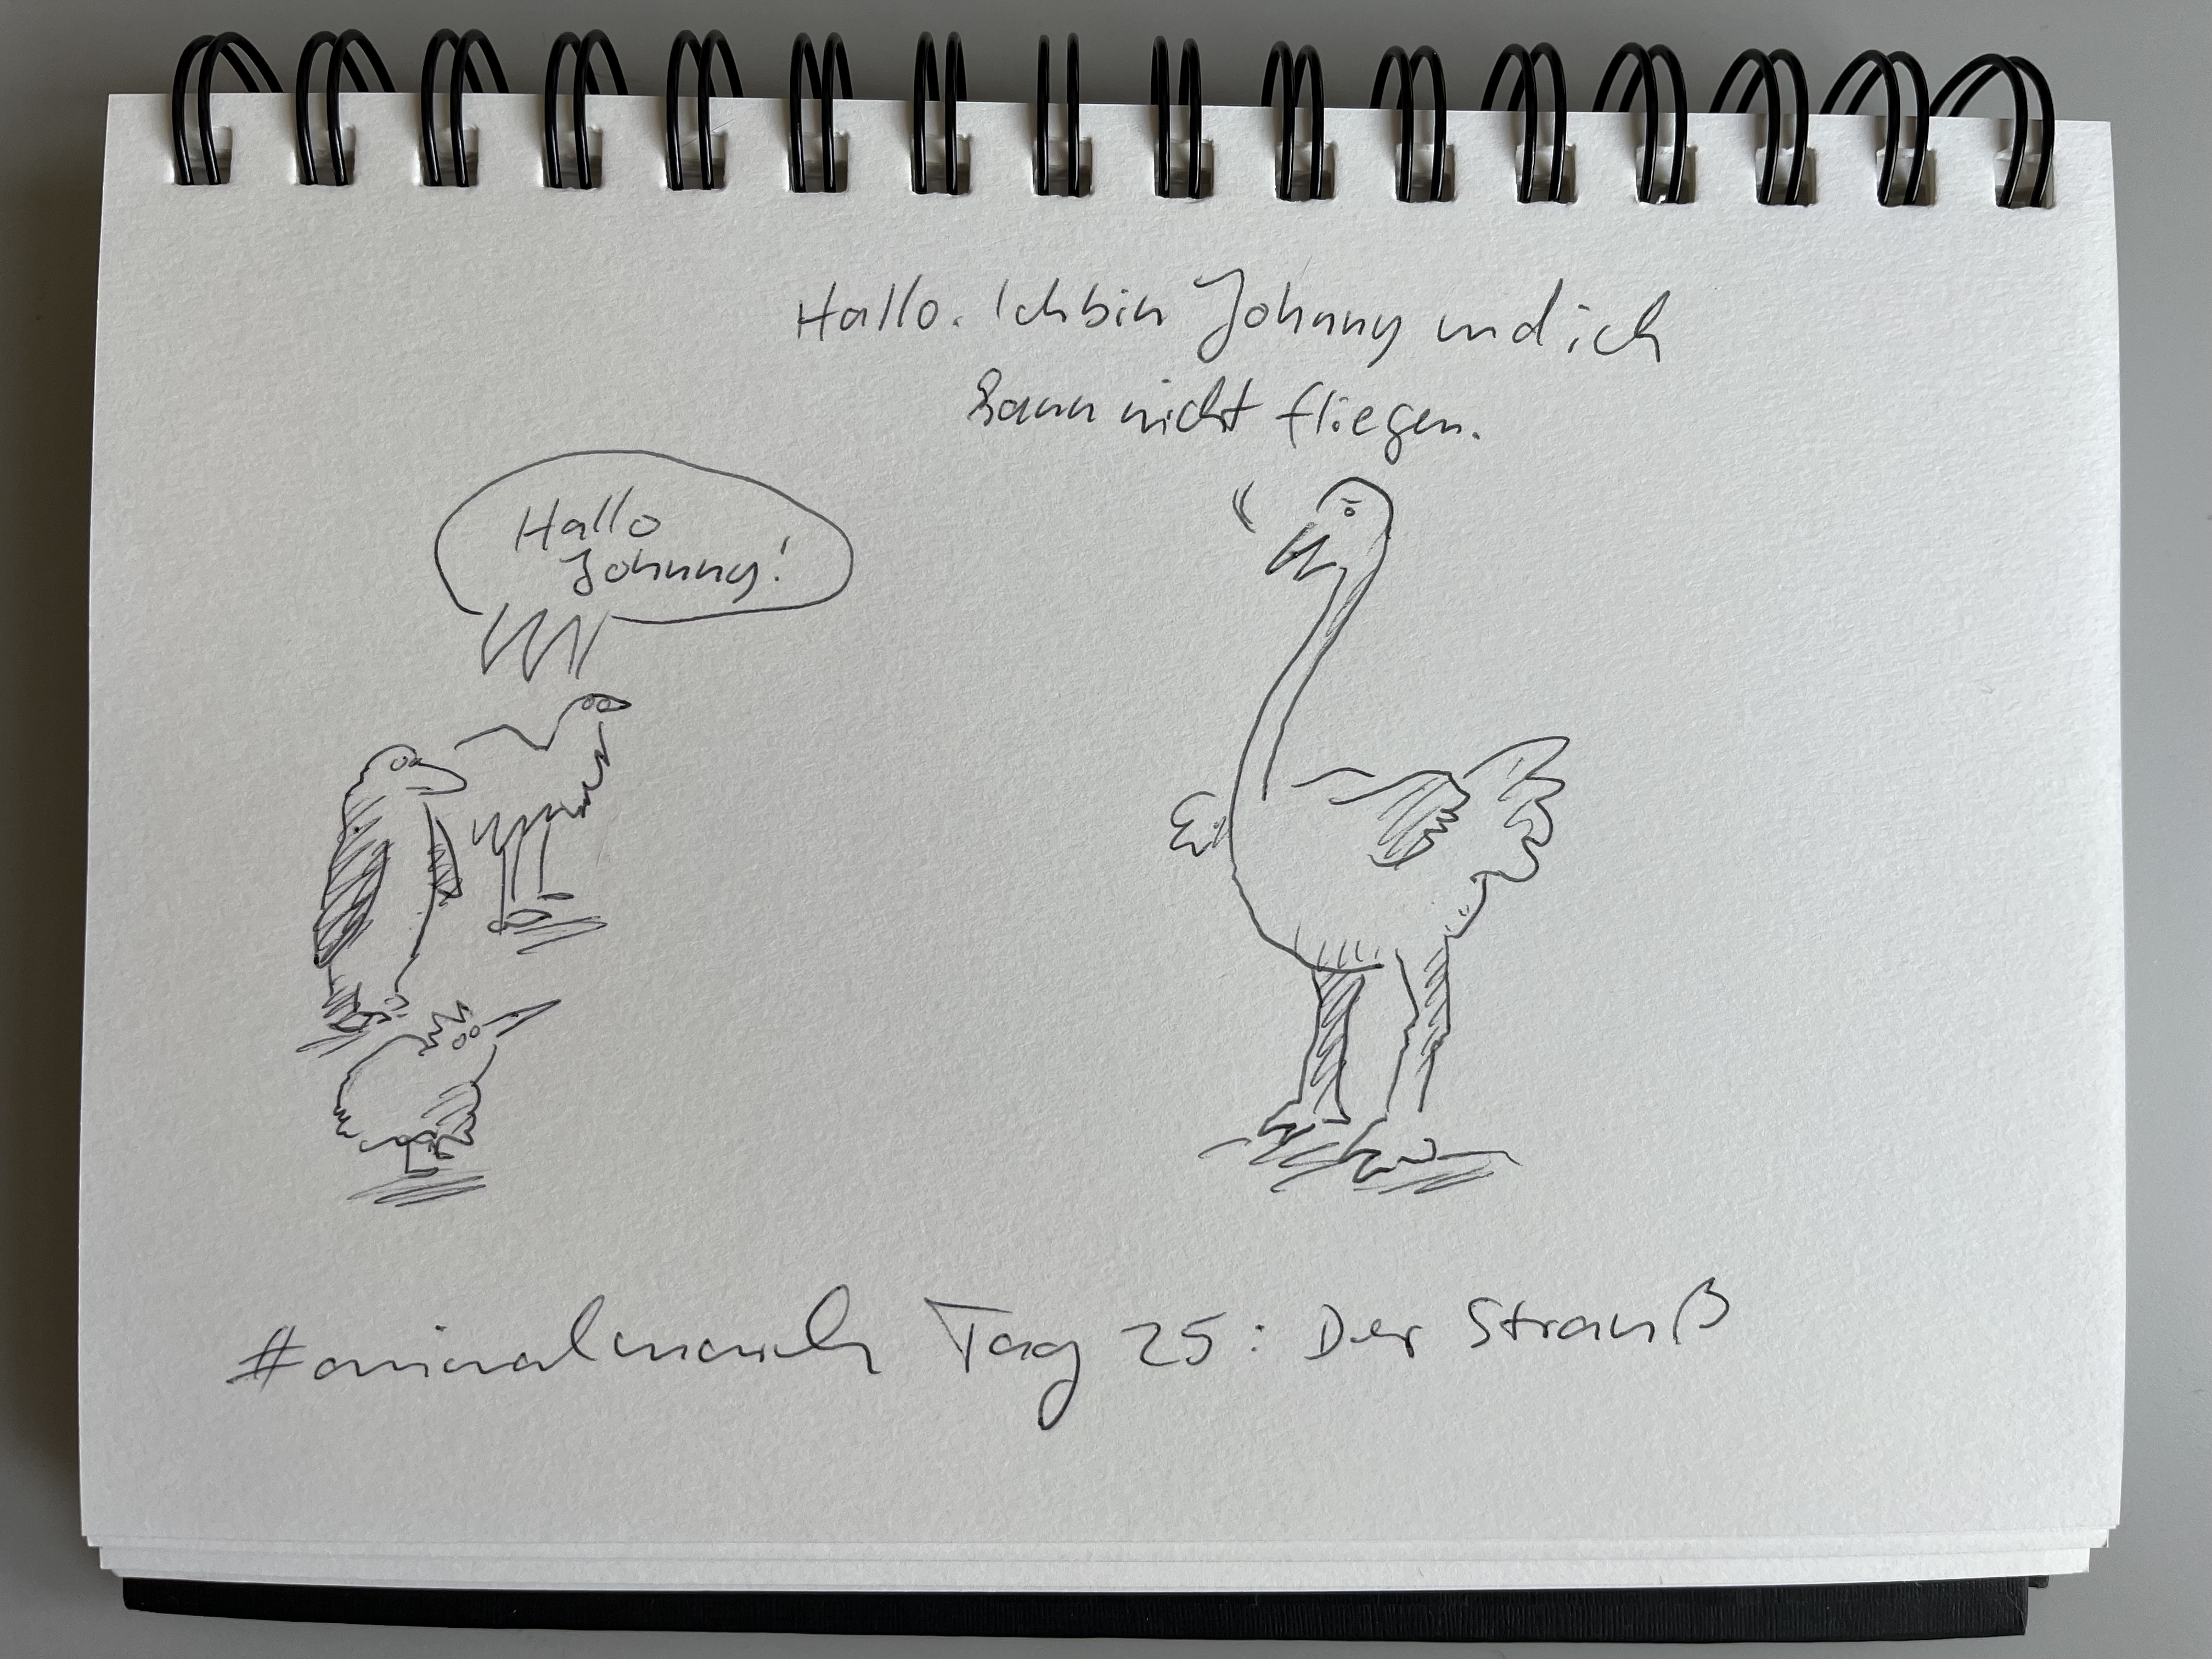 Hallo. Ich bin Johnny und ich
kann nicht fliegen.
Hallo
Johnny!
#animalmarch Tag 25: Der Strauß